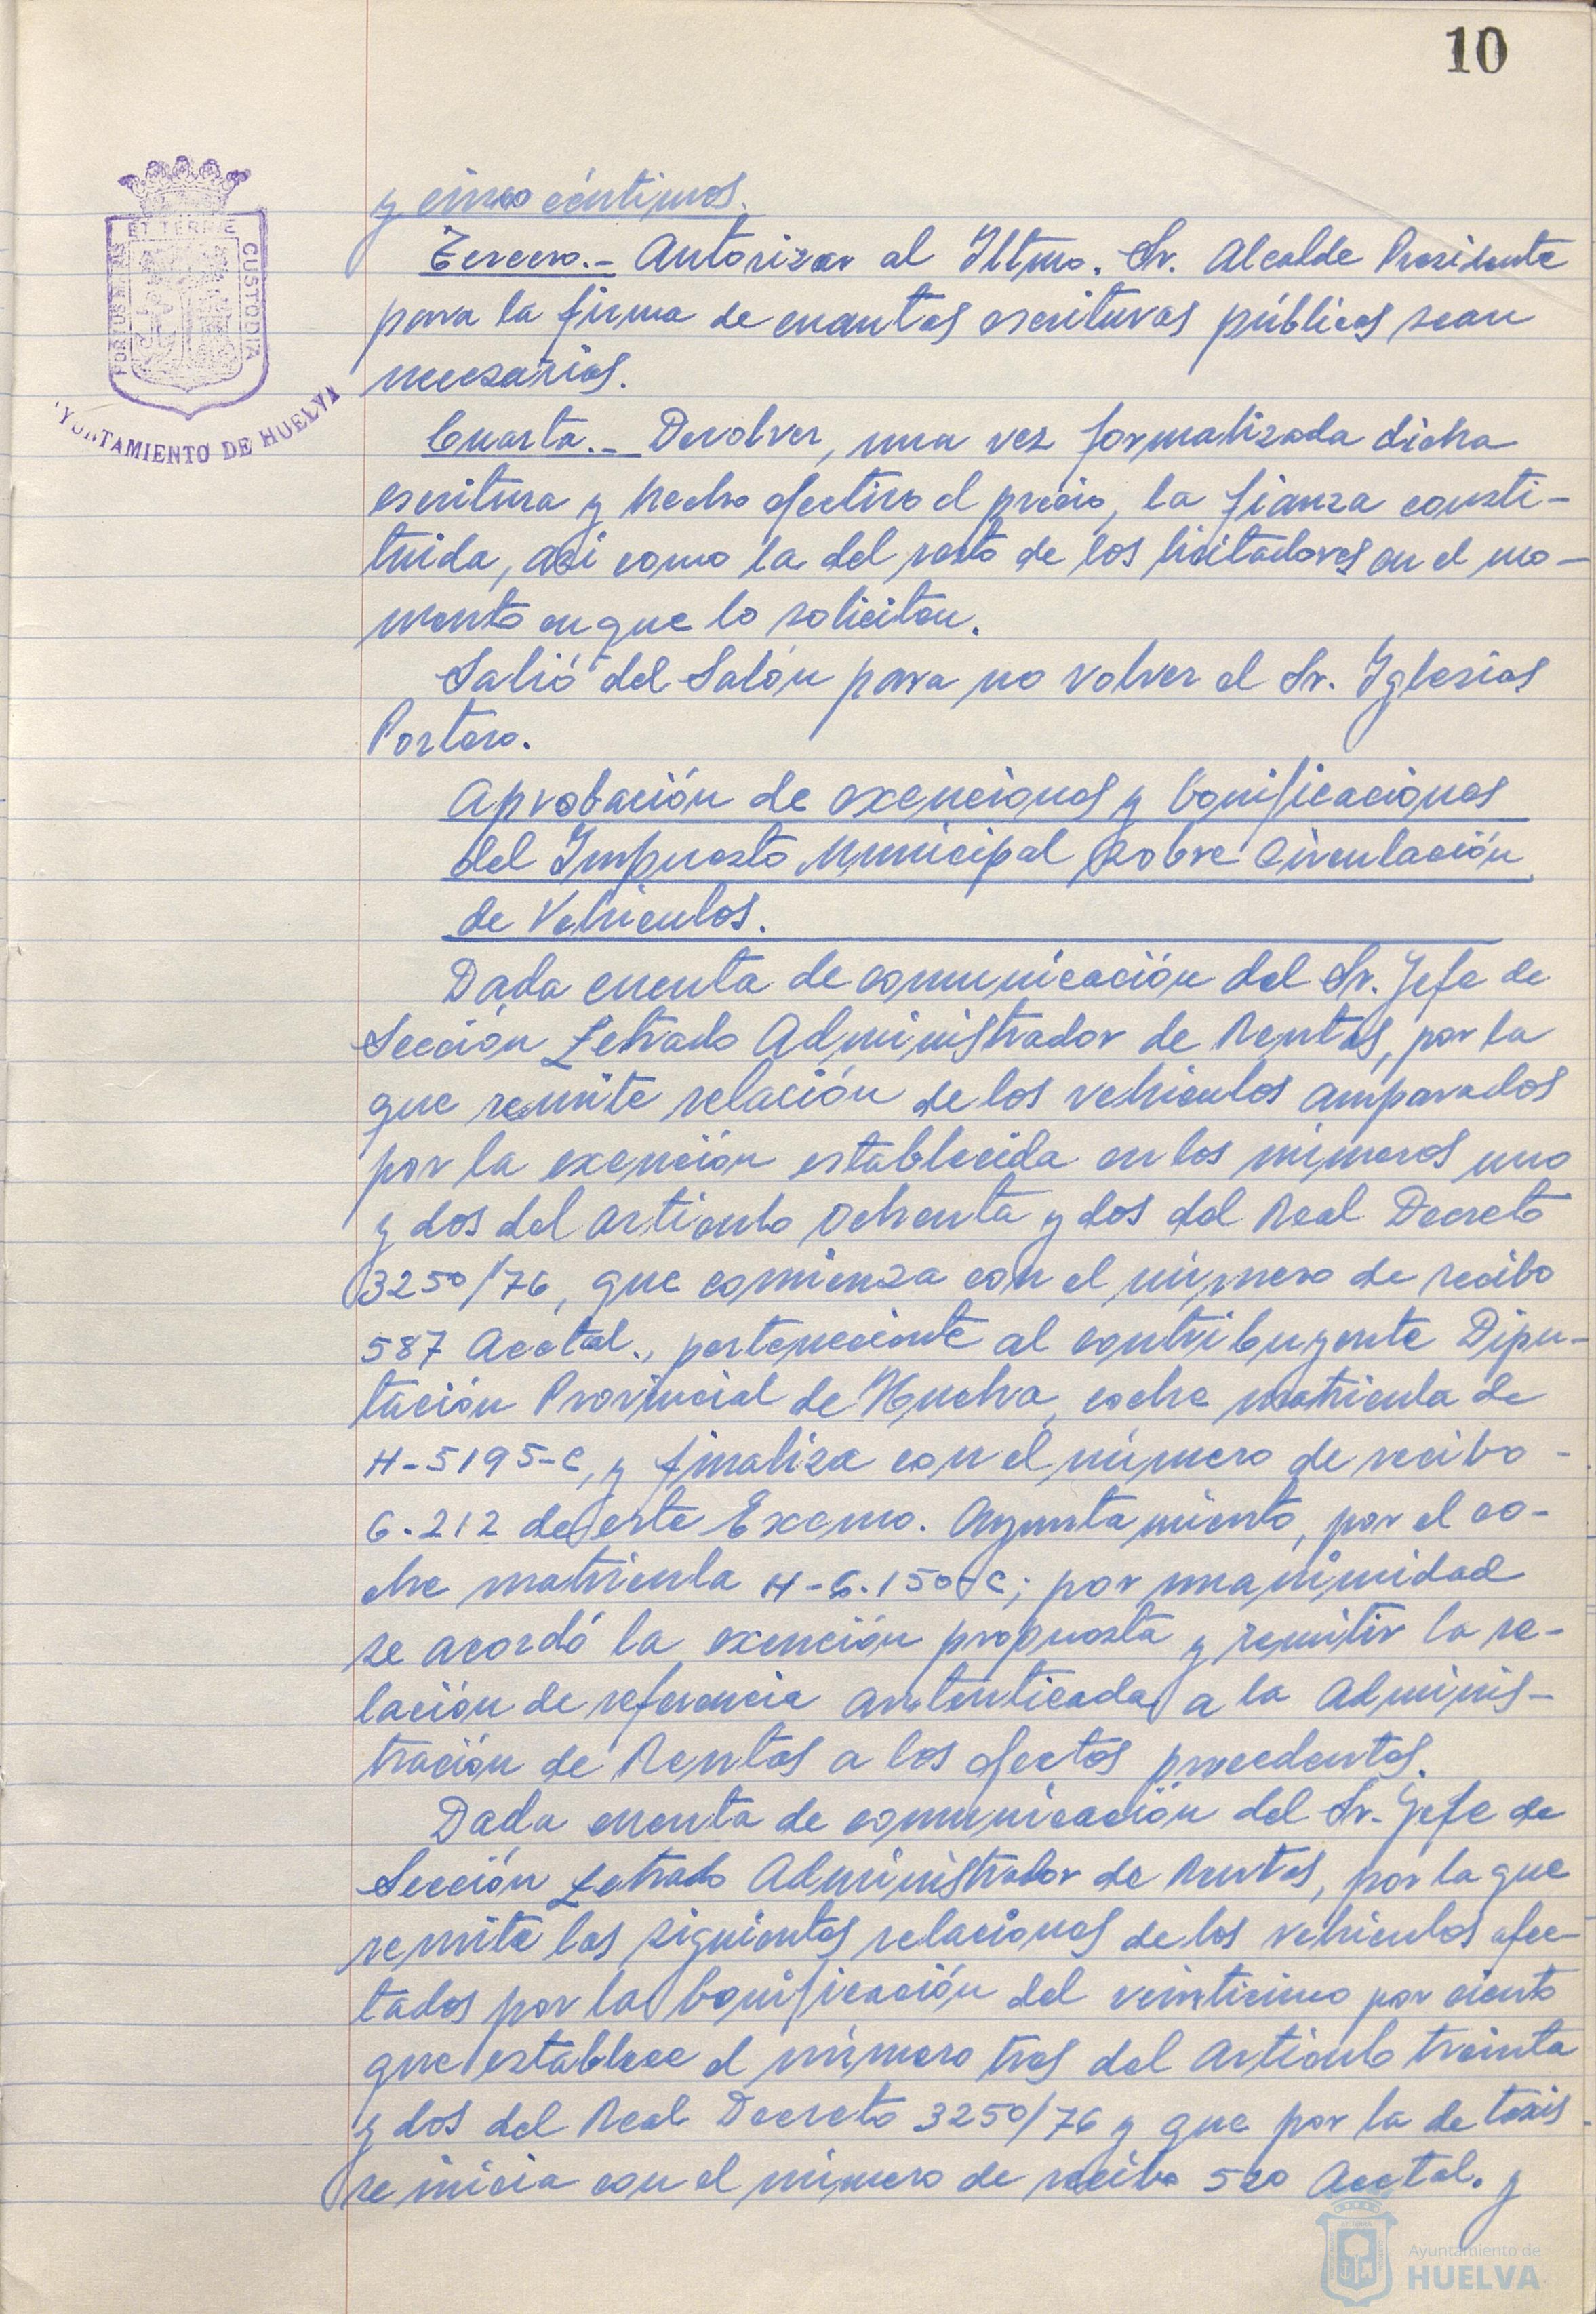 10
ET TERRAE
PORTUS MARIS
CUSTODIA
AYUNTAMIENTO DE HUELVA
y cinco céntimos.
Tercero.- Autorizar al Iltmo. Sr. Alcalde Presidente
para la firma de cuantas escrituras públicas sean
necesarias.
Cuarta.- Devolver, una vez formalizada dicha
escritura y hecho efectivo el precio, la fianza consti-
tuida, asi como la del resto de los licitadores en el mo-
mento en que lo soliciten.
Salió del Salón para no volver el Sr. Iglesias
Portero.
Aprobación de exenciones y bonificaciones
del Impuesto Municipal sobre Circulación
de Vehiculos.
Dada cuenta de comunicación del Sr. Jefe de
Sección Letrado Administrador de Rentas, por la
que remite relación de los vehiculos amparados
por la exención establecida en los números uno
y dos del articulo ochenta y dos del Real Decreto
3250/76, que comienza con el número de recibo
587 Acctal., perteneciente al contribuyente Dipu-
tación Provincial de Huelva, coche matricula de
H-5195-C, y finaliza con el número de recibo -
6.212 de este Excmo. Ayuntamiento, por el co-
che matricula H-6.150-C; por unanimidad
se acordó la exención propuesta y remitir la re-
lación de referencia autenticada a la Adminis-
tración de Rentas a los efectos procedentes.
Dada cuenta de comunicación del Sr. Jefe de
Sección Letrado Administrador de Rentas, por la que
remite las siguientes relaciones de los vehiculos afec-
tados por la bonificación del veinticinco por ciento
que establece el número tres del Articulo treinta
y dos del Real Decreto 3250/76 y que por la de taxis
se inicia con el número de recibo 520 Acctal. y
Ayuntamiento de
HUELVA